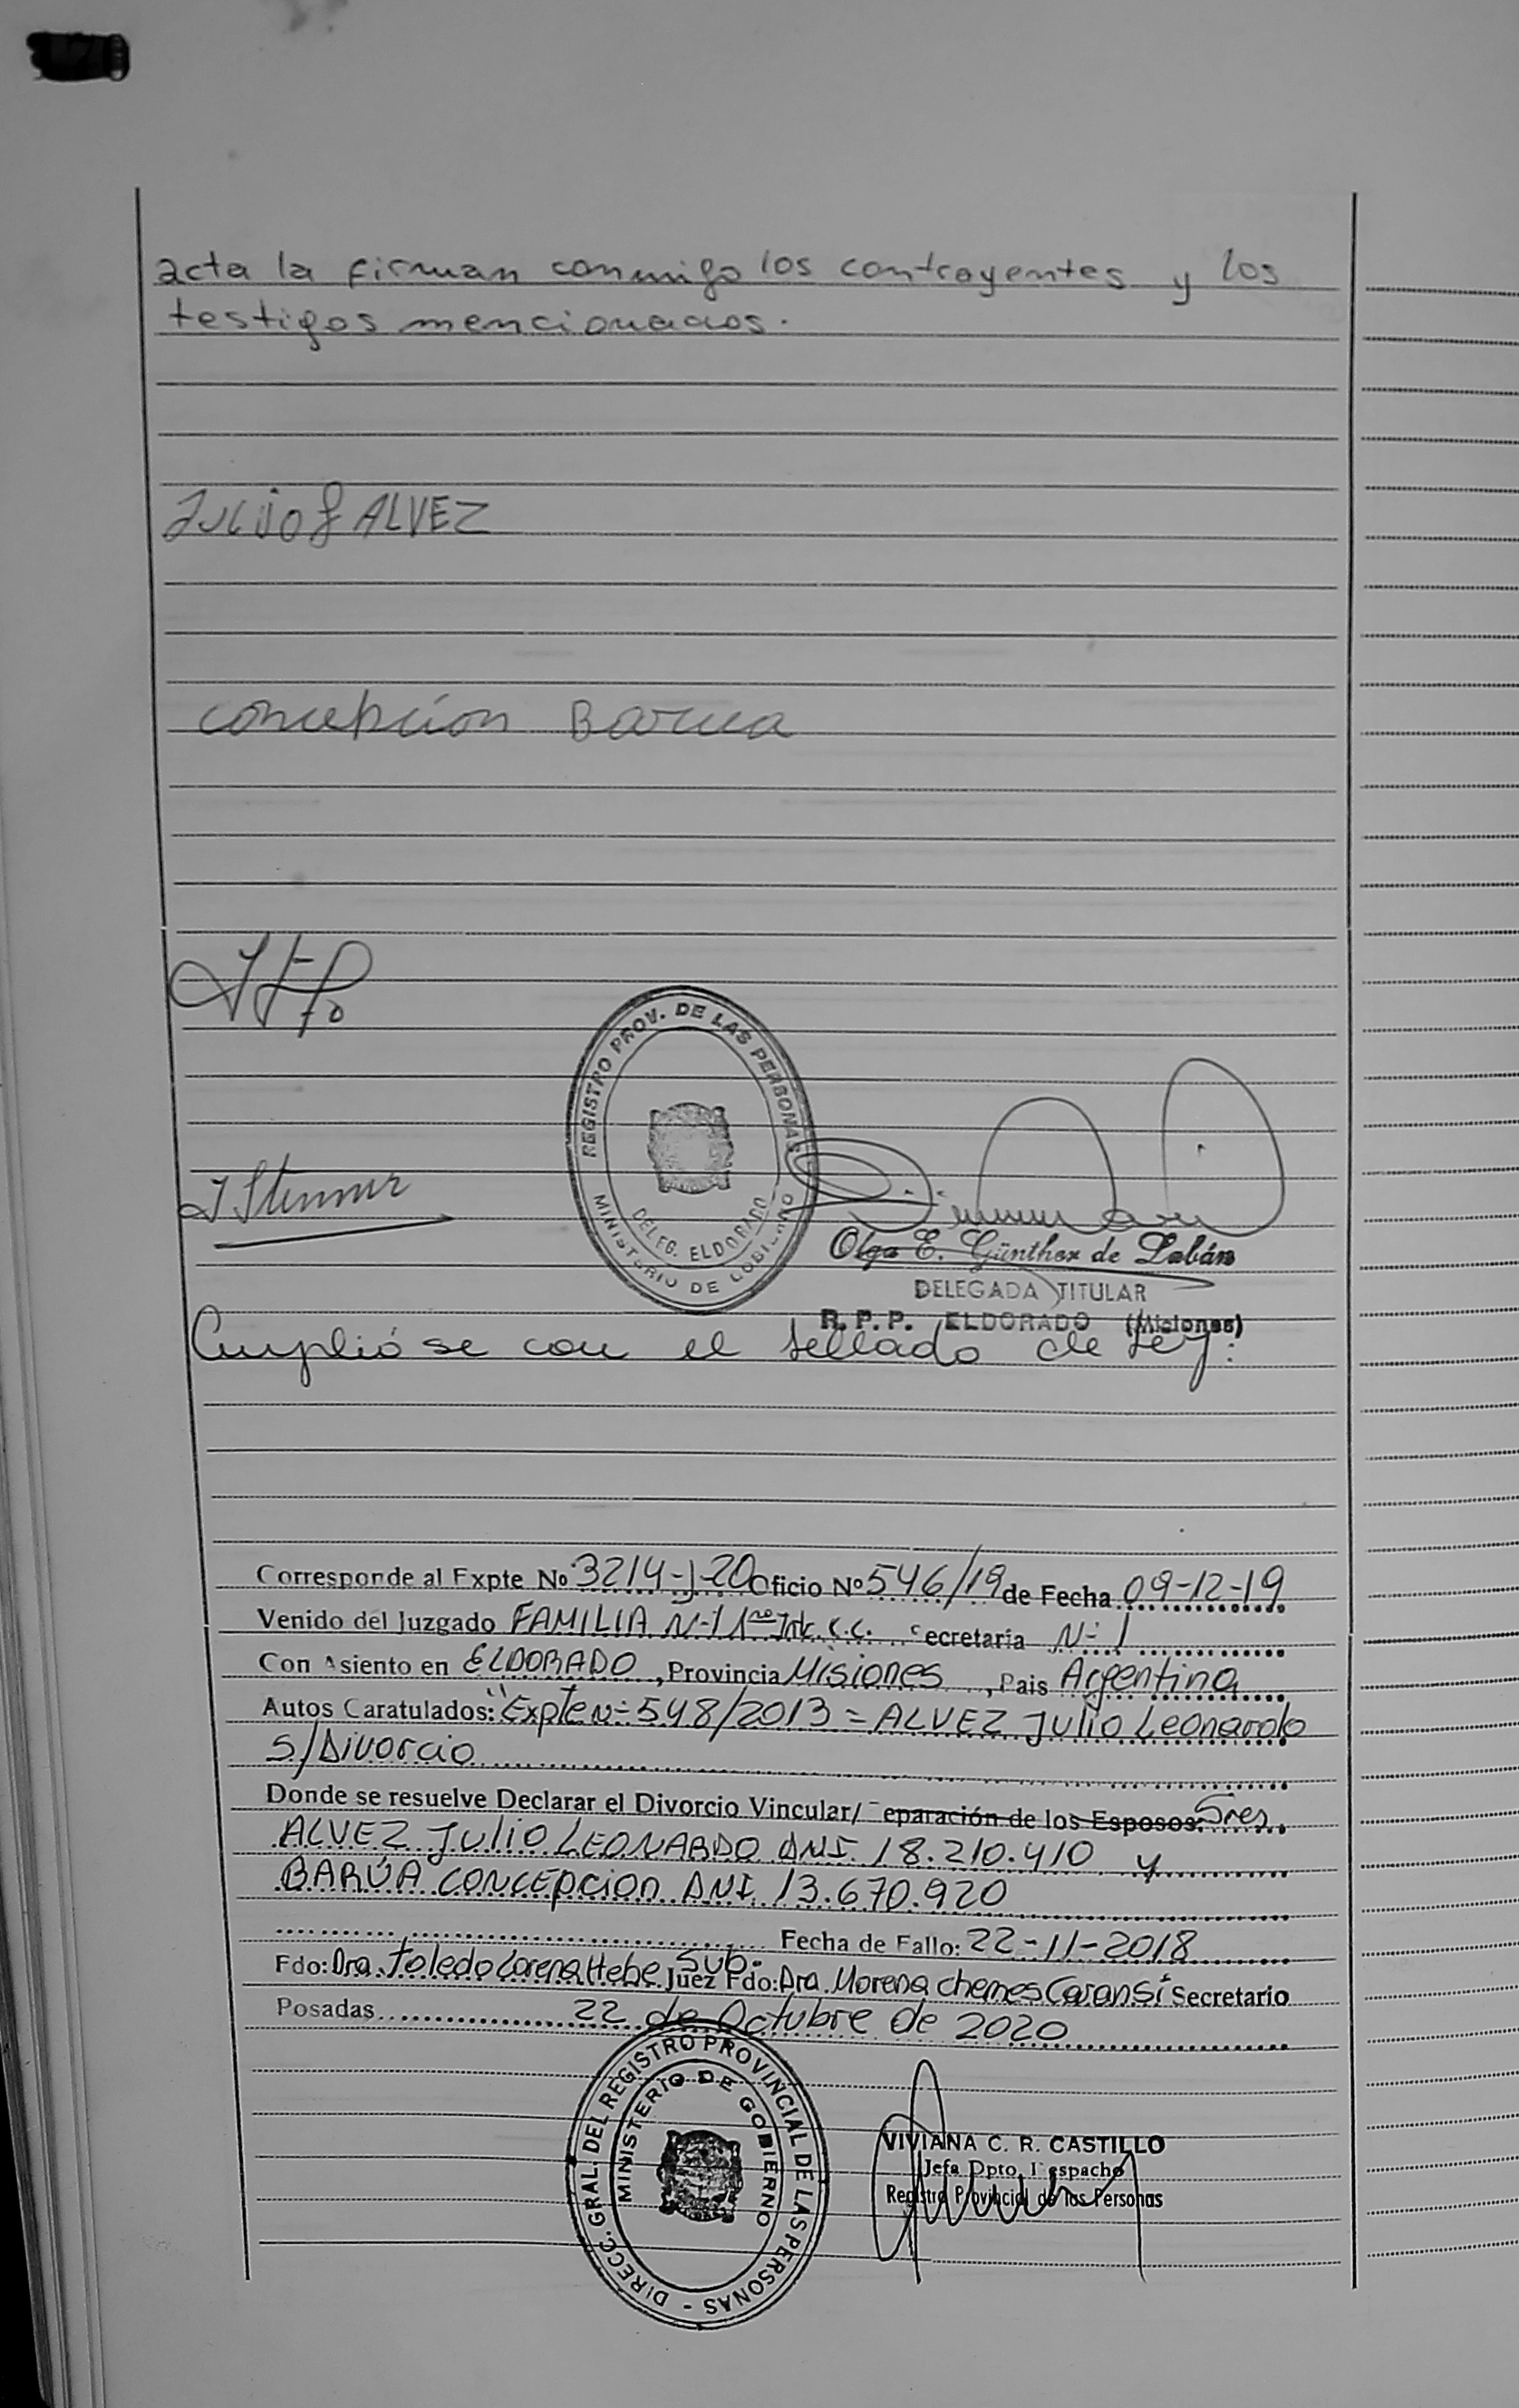 acta la firman conmigo los contrayentes y los
testigos mencionados.
Julio L ALVEZ
Concepcion Barua
REGISTRO PROV. DE LAS PERSONAS
MINISTERIO DE GOBIERNO
DELEG. ELDORADO
Olga E. Günther de Labán
DELEGADA TITULAR
R. P. P. ELDORADO (Misiones)
Cumplióse con el sellado de ley:
Corresponde al Expte No 3214-J-20 Oficio No 546/19 de Fecha 09-12-19
Venido del Juzgado FAMILIA N-1 1ra C.C. Secretaria N-1
Con Asiento en ELDORADO, Provincia Misiones, Pais Argentina
Autos Caratulados: "Expte N-548/2013 = ALVEZ Julio Leonardo
S/Divorcio
Donde se resuelve Declarar el Divorcio Vincular/ eparación de los Esposos: Sres.
ALVEZ Julio LEONARDO DNI. 18.210.410 y
BARÚA CONCEPCION DNI. 13.670.920
Fecha de Fallo: 22-11-2018
Fdo: Dra. Toledo Lorena Hebe Juez Sub. Fdo: Dra. Morena Chemes Caransi Secretario
Posadas 22 de Octubre de 2020
DIRECC. GRAL. DEL REGISTRO PROVINCIAL DE LAS PERSONAS -
MINISTERIO DE GOBIERNO
VIVIANA C. R. CASTILLO
Jefa Dpto. Despacho
Registro Provincial de las Personas